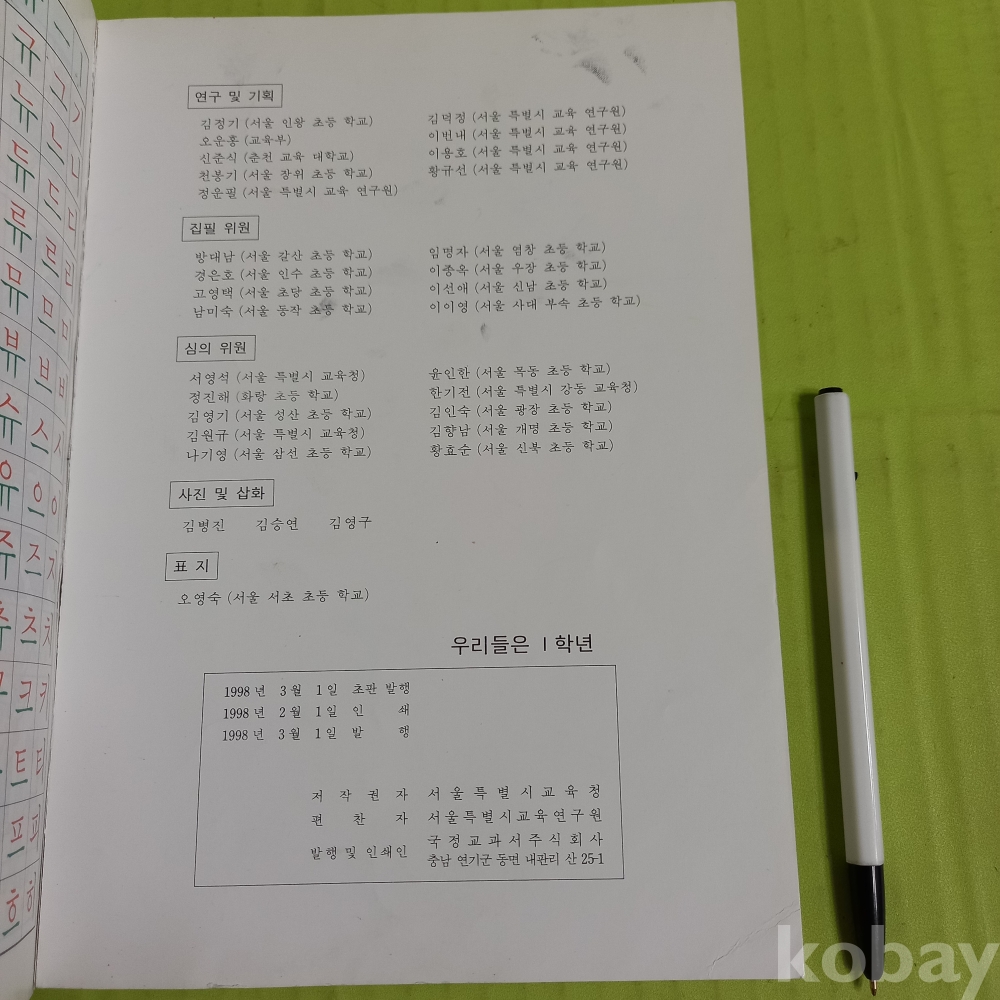 연구 및 기획
김정기 (서울 인왕 초등 학교)
오운홍 (교육부)
신준식 (춘천 교육 대학교)
천봉기 (서울 장위 초등 학교)
정운필 (서울 특별시 교육 연구원)
김덕정 (서울 특별시 교육 연구원)
이번내 (서울 특별시 교육 연구원)
이용호 (서울 특별시 교육 연구원)
황규선 (서울 특별시 교육 연구원)
집필 위원
방대남 (서울 갈산 초등 학교)
경은호 (서울 인수 초등 학교)
고영택 (서울 초당 초등 학교)
남미숙 (서울 동작 초등 학교)
임명자 (서울 염창 초등 학교)
이종옥 (서울 우장 초등 학교)
이선애 (서울 신남 초등 학교)
이이영 (서울 사대 부속 초등 학교)
심의 위원
서영석 (서울 특별시 교육청)
정진해 (화랑 초등 학교)
김영기 (서울 성산 초등 학교)
김원규 (서울 특별시 교육청)
나기영 (서울 삼선 초등 학교)
윤인한 (서울 목동 초등 학교)
한기전 (서울 특별시 강동 교육청)
김인숙 (서울 광장 초등 학교)
김향남 (서울 개명 초등 학교)
황효순 (서울 신북 초등 학교)
사진 및 삽화
김병진 김승연 김영구
표 지
오영숙 (서울 서초 초등 학교)
우리들은 1학년
1998년 3월 1일 초판 발행
1998년 2월 1일 인 쇄
1998년 3월 1일 발 행
저 작 권 자 서 울 특 별 시 교 육 청
편 찬 자 서울특별시교육연구원
발행 및 인쇄인 국 정 교 과 서 주 식 회 사
충남 연기군 동면 내판리 산 25-1
규 그
뉴 느 나
듀 드 다
류 르
뮤 므 미
뷰 브 비
슈 스 시
유 으
쥬 즈 지
츠
크
트
프
흐
kobay